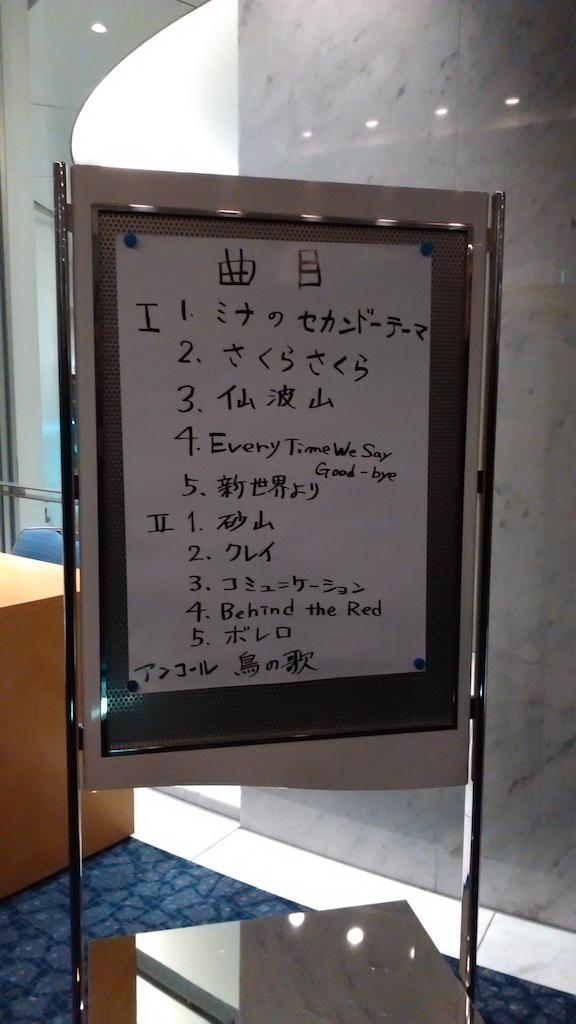 曲目
I 1. ミナのセカンドーテーマ
2. さくらさくら
3. 仙波山
4. Every Time We Say
Good-bye
5. 新世界より
II 1. 砂山
2. クレイ
3. コミュニケーション
4. Behind the Red
5. ボレロ
アンコール 鳥の歌